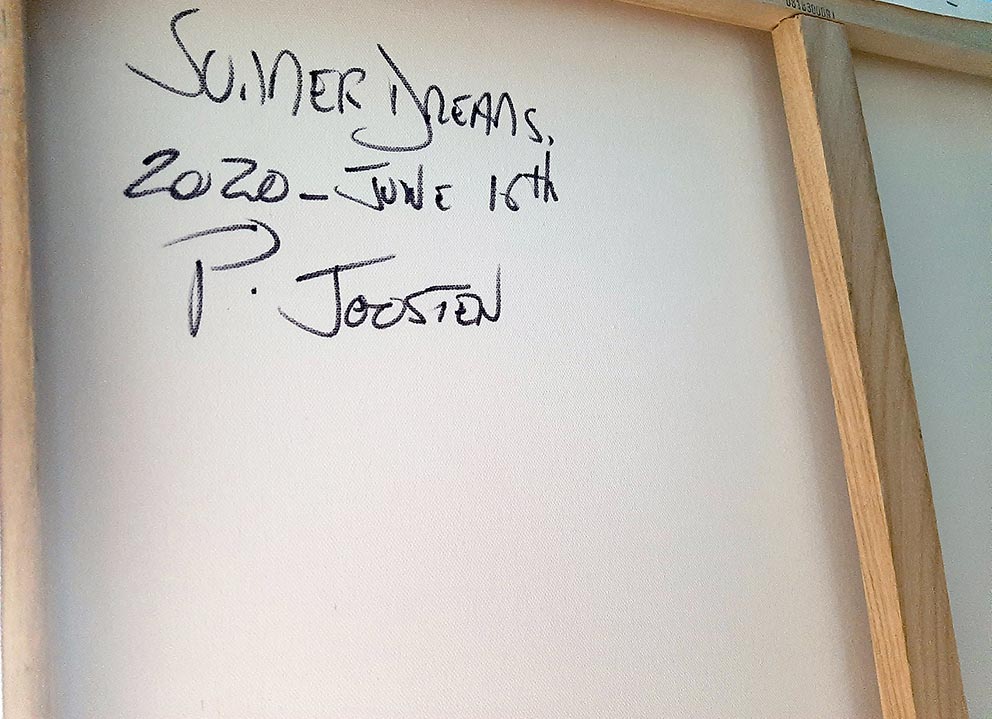 SUMMER DREAMS.
2020 - JUNE 16th
P. JOOSTEN